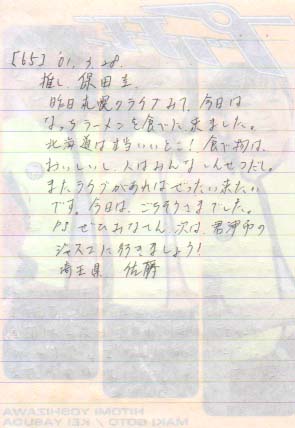 [65] '01. 3. 28.
推し 保田圭
昨日札幌のライブみて、今日は
なっちラーメンを食べに来ました。
北海道は本当いいとこ！食べ物は、
おいしいし、人はみんなしんせつだし。
またライブがあればぜったい来たい
です。今日は、ごちそうさまでした。
PS ぜひみなさん、次は、君津市の
ジャスコに行きましょう！
埼玉県 佐藤
HITOMI YOSHIZAWA
MAKI GOTO / KEI YASUDA